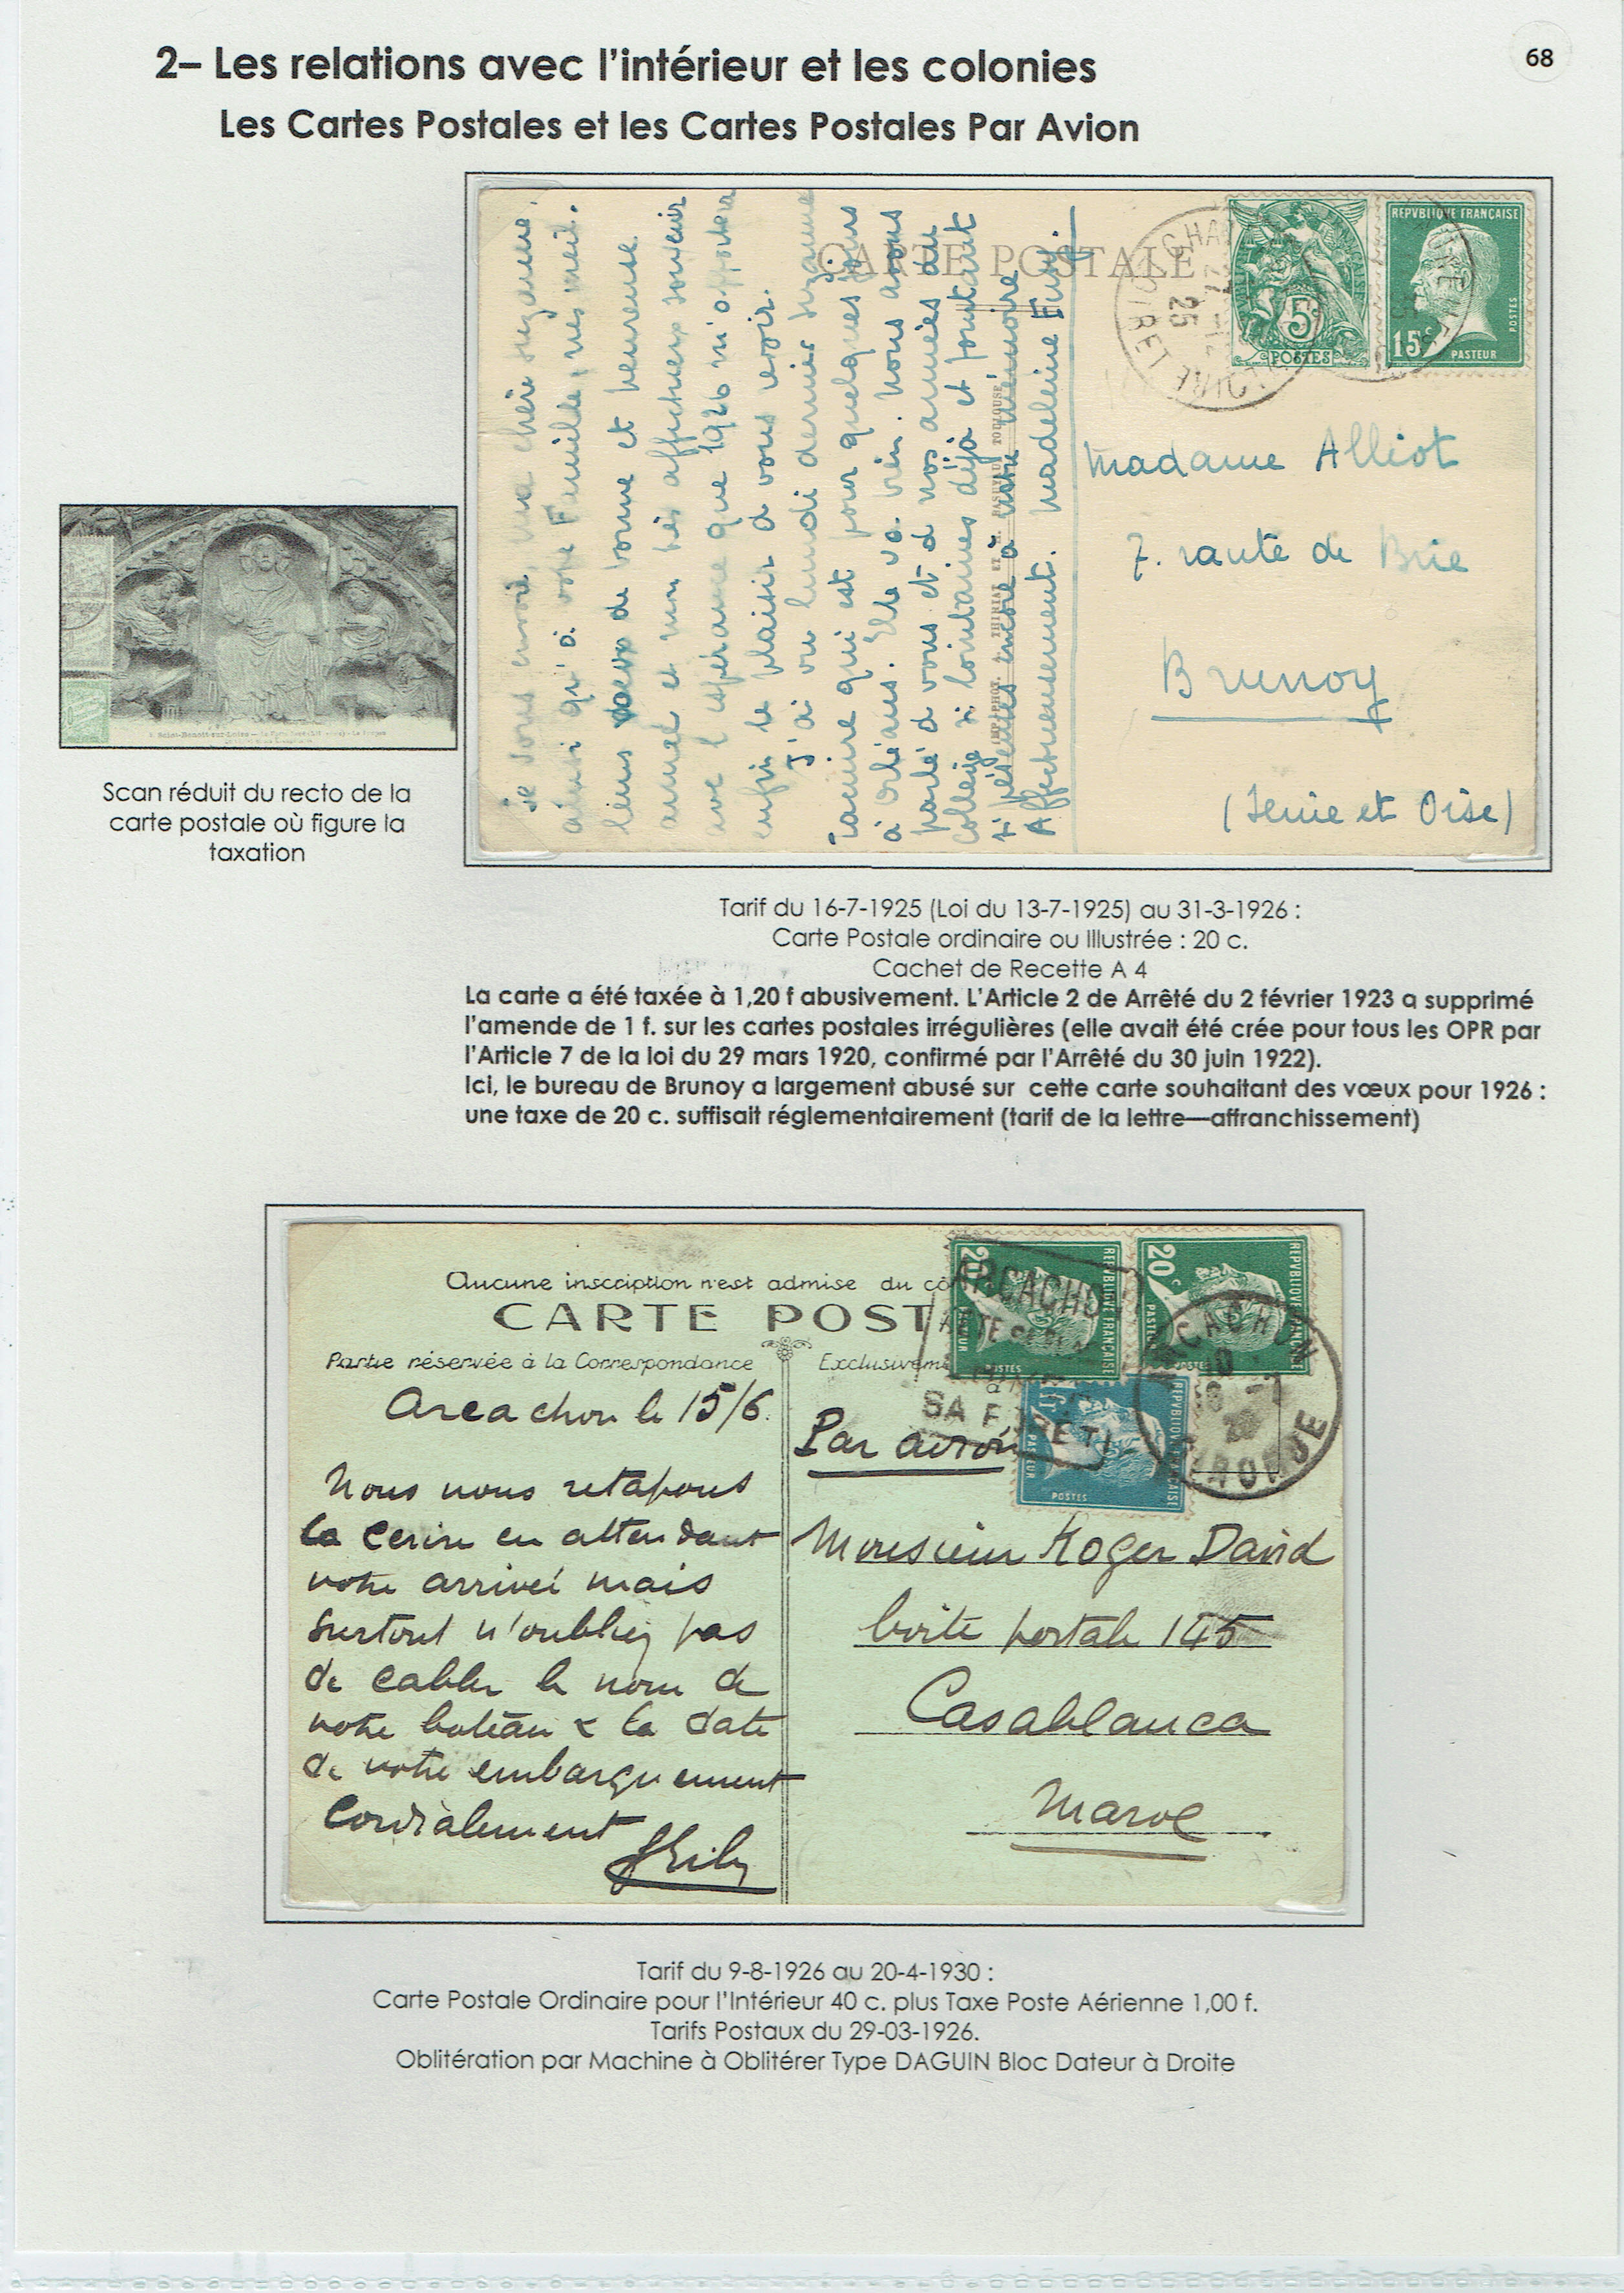 2– Les relations avec l'intérieur et les colonies
68
Les Cartes Postales et les Cartes Postales Par Avion
CARTE POSTALE
5c
POSTES
REPVBLIQVE FRANÇAISE
15c
POSTES
PASTEUR
LOIRET
25
je vous envoie, ma chère Suzanne,
ainsi qu'à votre Famille, mes meil-
leurs vœux de bonne et heureuse
année et mon très affectueux souvenir
avec l'espérance que 1926 m'apportera
enfin le plaisir de vous revoir.
J'ai vu lundi dernier Suzanne
qui est pour quelques jours
à Orléans. Elle va bien. Nous avons
parlé de vous et de nos années de
collège si lointaines déjà et pourtant
si présentes encore à notre mémoire
Affectueusement. Madeleine
Madame Alliot
7. route de Brie
Brunoy
(Seine et Oise)
Scan réduit du recto de la
carte postale où figure la
taxation
Tarif du 16-7-1925 (Loi du 13-7-1925) au 31-3-1926 :
Carte Postale ordinaire ou Illustrée : 20 c.
Cachet de Recette A 4
La carte a été taxée à 1,20 f abusivement. L'Article 2 de Arrêté du 2 février 1923 a supprimé
l'amende de 1 f. sur les cartes postales irrégulières (elle avait été crée pour tous les OPR par
l'Article 7 de la loi du 29 mars 1920, confirmé par l'Arrêté du 30 juin 1922).
Ici, le bureau de Brunoy a largement abusé sur cette carte souhaitant des vœux pour 1926 :
une taxe de 20 c. suffisait réglementairement (tarif de la lettre—affranchissement)
Aucune inscription n'est admise du cô
CARTE POST
Partie réservée à la Correspondance
Exclusivem
20c
REPVBLIQVE FRANÇAISE
PASTEUR
POSTES
20c
REPVBLIQVE FRANÇAISE
PASTEUR
POSTES
1fr
REPVBLIQVE FRANÇAISE
PASTEUR
POSTES
ARCACHON
SA FORÊT
ARCACHON
GIRONDE
Arcachon le 15/6.
Nous nous retapons
la cerise en attendant
votre arrivée mais
surtout n'oubliez pas
de cabler le nom de
votre bateau & la date
de votre embarquement
Cordialement
Par avion
Monsieur Roger David
boite postale 145
Casablanca
Maroc
Tarif du 9-8-1926 au 20-4-1930 :
Carte Postale Ordinaire pour l'Intérieur 40 c. plus Taxe Poste Aérienne 1,00 f.
Tarifs Postaux du 29-03-1926.
Oblitération par Machine à Oblitérer Type DAGUIN Bloc Dateur à Droite